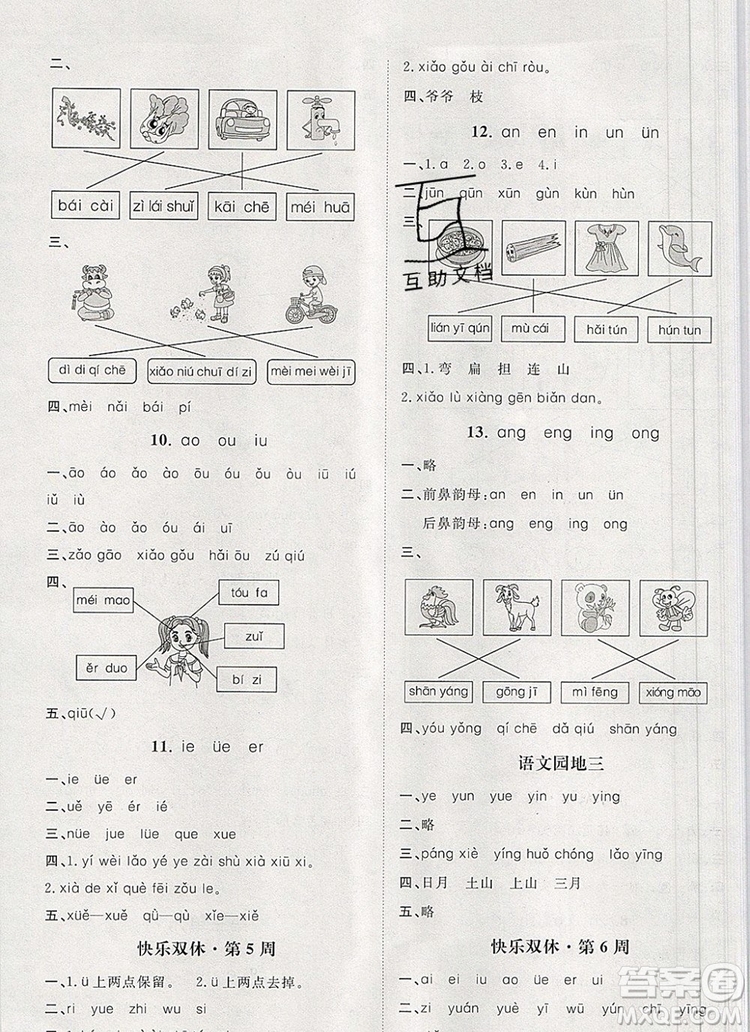 二、
bái cài zì lái shuǐ kāi chē méi huā
三、
dì di qí chē xiǎo niú chuī dí zi mèi mei wèi jī
四、mèi nǎi bái pí
10. ao ou iu
一、āo áo ǎo ào ōu óu ǒu òu iū iú
iǔ iù
二、āo áo ào óu ái uī
三、zǎo gāo xiǎo gǒu hǎi ōu zú qiú
四、
méi mao tóu fa
zuǐ
ěr duo bí zi
五、qiū(√)
11. ie üe er
一、ie üe er
二、uě yē ér ié
三、nüe jue lüe que xue
四、1. yí wèi lǎo yé ye zài shù xià xiū xi.
2. xià de xǐ què fēi zǒu le.
五、xüě—xuě qù—qù xuē—xuē
快乐双休·第 5 周
一、1. ü 上两点保留。 2. ü 上两点去掉。
二、ri yue zhi wu si
2. xiǎo gǒu ài chī ròu。
四、爷爷 枝
12. an en in un ün
一、1. a 2. o 3. e 4. i
二、jūn qūn xūn gùn kùn hùn
三、
互助文档
lián yī qún mù cái hǎi tún hún tun
四、1. 弯 扁 担 连 山
2. xiǎo lù xiàng gēn biǎn dan。
13. ang eng ing ong
一、略
二、前鼻韵母:an en in un ün
后鼻韵母:ang eng ing ong
三、
shān yáng gōng jī mì fēng xióng māo
四、yóu yǒng qí chē dǎ qiú shān yáng
语文园地三
一、ye yun yue yin yu ying
二、略
三、páng xiè yíng huǒ chóng lǎo yīng
四、日月 土山 上山 三月
五、略
快乐双休·第 6 周
一、ai ei iu ao üe er ui
二、zi yuán yuè yī wǔ yún chī yīng
答案圈
MXQE.COM